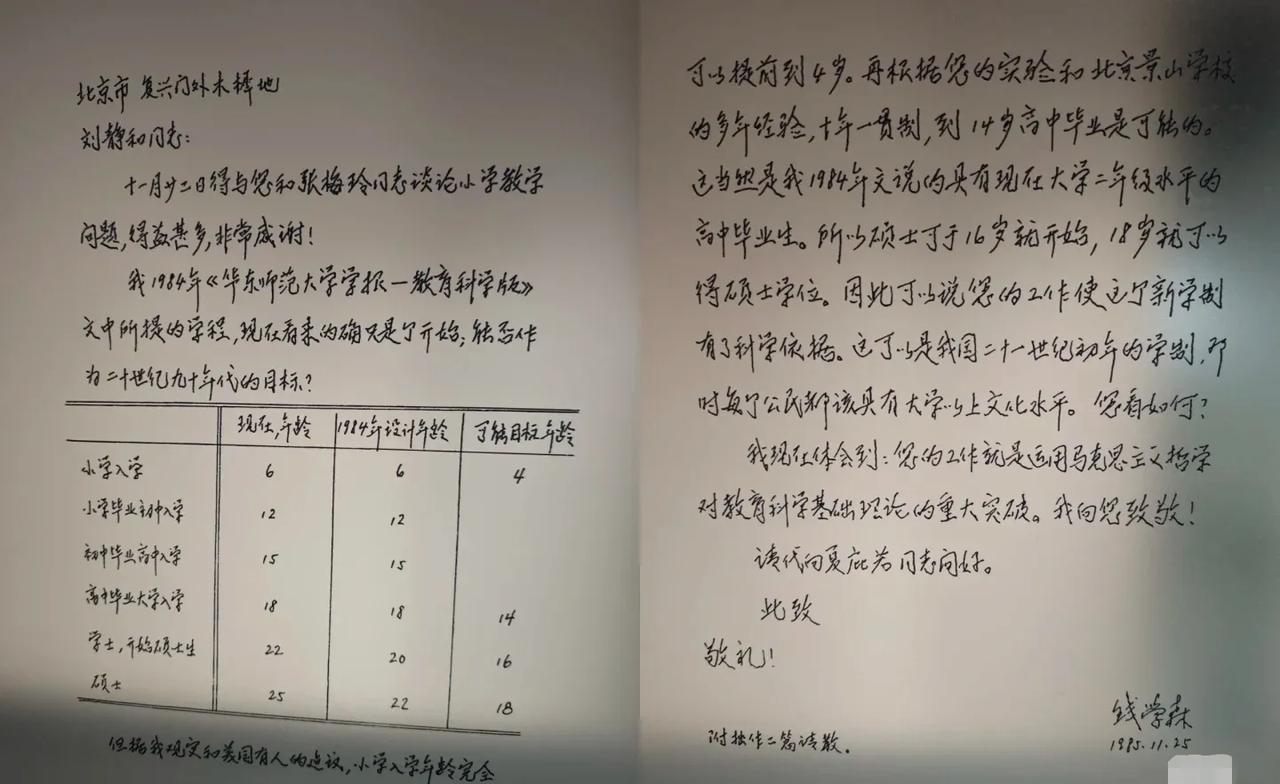 北京市 复兴门外木樨地
刘静和同志：
十一月廿二日得与您和张梅玲同志谈论小学教学
问题，得益甚多，非常感谢！
我1984年《华东师范大学学报—教育科学版》
文中所提的学程，现在看来的确只是个开始；能否作
为二十世纪九十年代的目标？
现在，年龄 1984年设计年龄 可能目标年龄
小学入学 6 6 4
小学毕业初中入学 12 12
初中毕业高中入学 15 15
高中毕业大学入学 18 18 14
学士，开始硕士生 22 20 16
硕士 25 22 18
但据我观察和美国有人的建议，小学入学年龄完全
可以提前到4岁。再根据您的实验和北京景山学校
的多年经验，十年一贯制，到14岁高中毕业是可能的。
这当然是我1984年文说的具有现在大学二年级水平的
高中毕业生。所以硕士可于16岁就开始，18岁就可以
得硕士学位。因此可以说您的工作使这个新学制
有了科学依据。这可以是我国二十一世纪初年的学制，那
时每个公民都该具有大学以上文化水平。您看如何？
我现在体会到：您的工作就是运用马克思主义哲学
对教育科学基础理论的重大突破。我向您致敬！
请代向夏庇若同志问好。
此致
敬礼！
钱学森
1985.11.25
附拙作二篇请教。